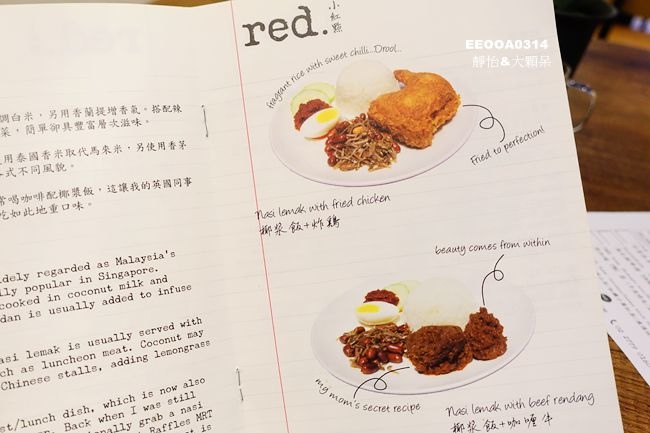 調白米，另用香蘭提增香氣。搭配辣
菜，簡單卻具豐富層次滋味。
用泰國香米取代馬來米，另使香茅
式不同風貌。
常喝咖啡配椰漿飯，這讓我的英國同事
吃如此地重口味。
idely regarded as Malaysia's
lly popular in Singapore.
cooked in coconut milk and
dan is usually added to infuse
asi lemak is usually served with
ch as luncheon meat. Coconut may
Chinese stalls, adding lemongrass
st/lunch dish, which is now also
n. Back when I was still
ionally grab a nasi
Raffles MRT
t is
red.
小紅點
EEOOA0314
靜怡&大顆呆
fragrant rice with sweet chilli...Drool...
Fried to perfection!
Nasi lemak with fried chicken
椰漿飯+炸鷄
beauty comes from within
my mom's secret recipe
Nasi lemak with beef rendang
椰漿飯+咖喱牛